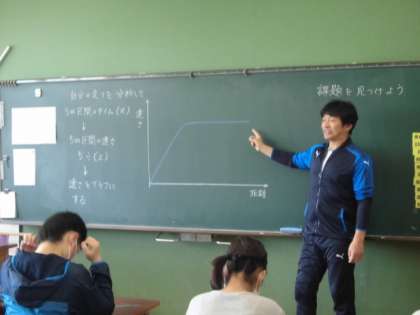 自分の走りを分析して
5m区間のタイム(x)
↓
5m区間の速さ
5÷(x)
↓
速さをグラフに
する
速さ
距離
課題を見つけよう
PUMA